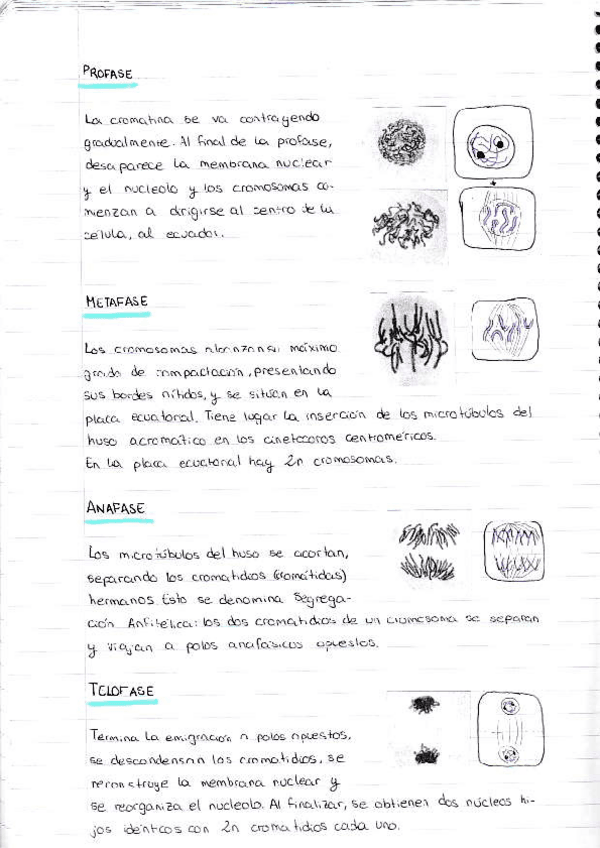 PROFASE
La cromatina se va contrayendo
gradualmente. Al final de la profase,
desaparece la membrana nuclear
y el nucleolo y los cromosomas co-
mienzan a dirigirse al centro de la
célula, al ecuador.
METAFASE
Los cromosomas alcanzan su máximo
grado de compactación, presentando
sus bordes nítidos, y se sitúan en la
placa ecuatorial. Tiene lugar la inserción de los microtúbulos del
huso acromático en los cinetocoros centroméricos.
En la placa ecuatorial hay 2n cromosomas.
ANAFASE
Los microtúbulos del huso se acortan,
separando los cromatidios (cromátidas)
hermanos. Esto se denomina Segrega-
ción Anfitélica: los dos cromatidios de un cromosoma se separan
y viajan a polos anafásicos opuestos.
TELOFASE
Termina la emigración a polos opuestos,
se descondensan los cromatidios, se
reconstruye la membrana nuclear y
se reorganiza el nucleolo. Al finalizar, se obtienen dos núcleos hi-
jos idénticos con 2n cromatidios cada uno.